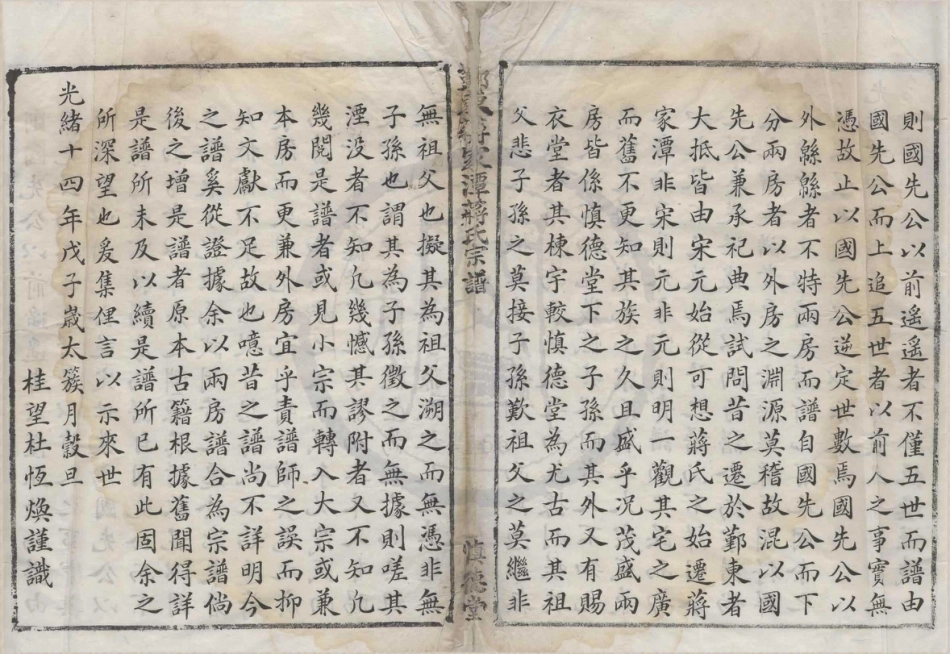 則國先公以前遥遥者不僅五世而譜由
國先公而上追五世者以前人之事實無
憑故止以國先公逆定世數焉國先公以
外緜緜者不特兩房而譜自國先公而下
分兩房者以外房之淵源莫稽故混以國
先公兼承祀典焉試問昔之遷於鄞東者
大抵皆由宋元始從可想蔣氏之始遷蔣
家潭非宋則元非元則明一觀其宅之廣
而舊不更知其族之久且盛乎况茂盛兩
房皆係慎德堂下之子孫而其外又有賜
衣堂者其棟宇較慎德堂為尤古而其祖
父悲子孫之莫接子孫歎祖父之莫繼非
家潭蔣氏宗譜
慎德堂
無祖父也擬其為祖父溯之而無憑非無
子孫也謂其為子孫徵之而無據則嗟其
湮没者不知凢幾憾其謬附者又不知凢
幾閱是譜者或見小宗而轉入大宗或兼
本房而更兼外房宜乎責譜師之誤而抑
知文獻不足故也噫昔之譜尚不詳明今
之譜奚從證據余以兩房譜合為宗譜倘
後之增是譜者原本古籍根據舊聞得詳
是譜所未及以續是譜所已有此固余之
所深望也爰集俚言以示來世
光緒十四年戊子歲太簇月穀旦
桂望杜恆煥謹識